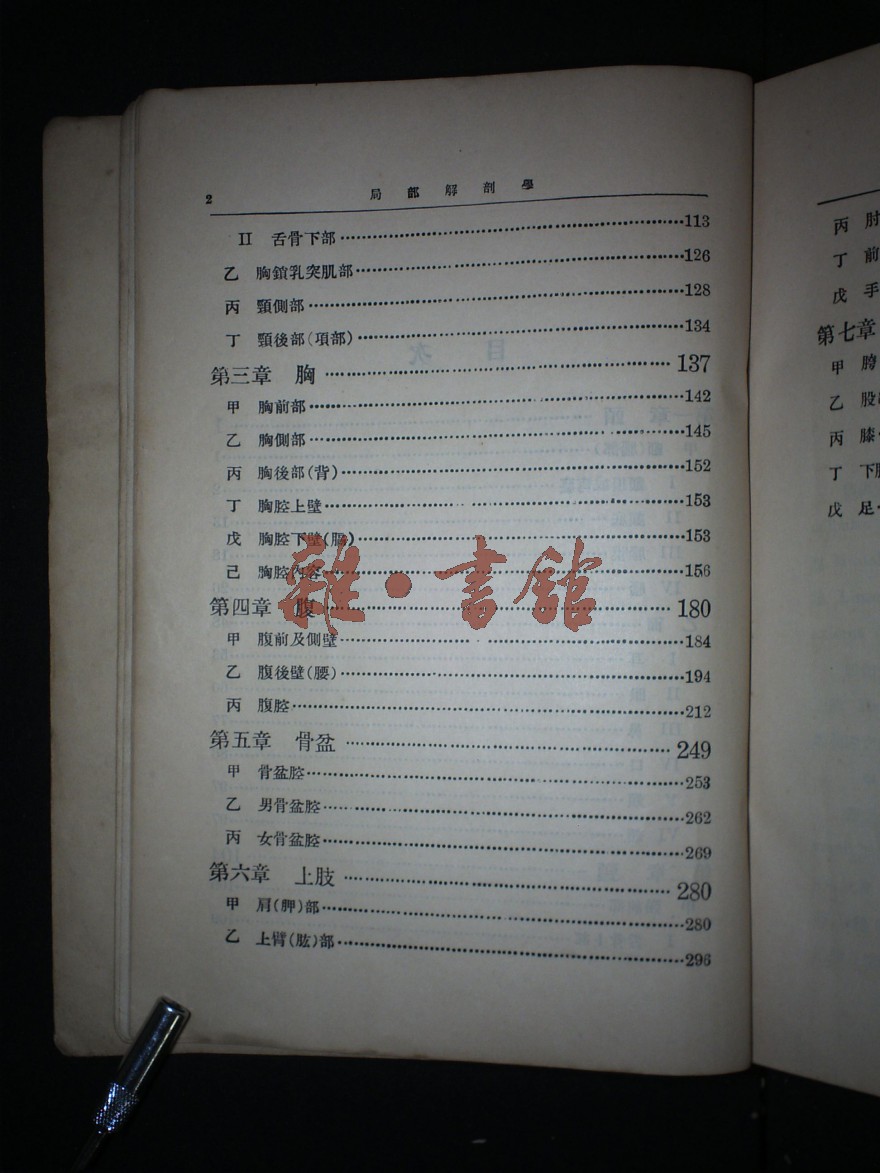 2
局部解剖學
II 舌骨下部 113
乙 胸鎖乳突肌部 126
丙 頸側部 128
丁 頸後部(項部) 134
第三章 胸 137
甲 胸前部 142
乙 胸側部 145
丙 胸後部(背) 152
丁 胸腔上壁 153
戊 胸腔下壁(膈) 153
己 胸腔內容 156
第四章 腹 180
甲 腹前及側壁 184
乙 腹後壁(腰) 194
丙 腹腔 212
第五章 骨盆 249
甲 骨盆腔 253
乙 男骨盆腔 262
丙 女骨盆腔 269
第六章 上肢 280
甲 肩(胛)部 280
乙 上臂(肱)部 296
雜·書館
丙 肘
丁 前
戊 手
第七章
甲 胯
乙 股
丙 膝
丁 下
戊 足